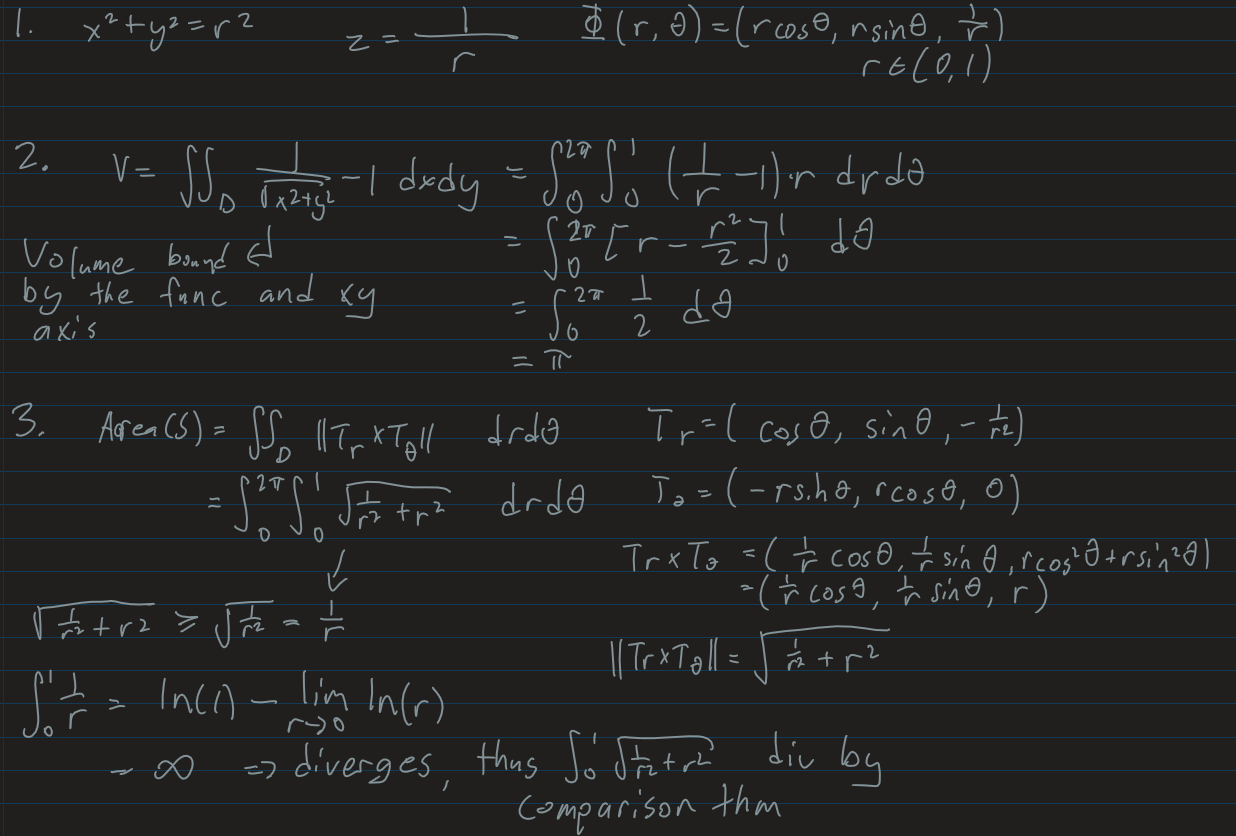 1. x² + y² = r²   z = 1/r   Φ(r, θ) = (r cosθ, r sinθ, 1/r)
r ∈ (0, 1)
2. V = ∬_D 1/√(x²+y²) - 1 dxdy = ∫_0^{2π} ∫_0^1 (1/r - 1)·r dr dθ
= ∫_0^{2π} [r - r²/2]_0^1 dθ
= ∫_0^{2π} 1/2 dθ
= π
Volume bound
by the func and xy
axis
3. Area(S) = ∬_D ||T_r × T_θ|| drdθ
= ∫_0^{2π} ∫_0^1 √(1/r² + r²) drdθ
↓
√(1/r² + r²) ≥ √(1/r²) = 1/r
T_r = (cosθ, sinθ, -1/r²)
T_θ = (-r sinθ, r cosθ, 0)
Tr × T_θ = (1/r cosθ, 1/r sinθ, r cos²θ + r sin²θ)
= (1/r cosθ, 1/r sinθ, r)
||Tr × T_θ|| = √(1/r² + r²)
∫_0^1 1/r = ln(1) - lim_{r→0} ln(r)
= ∞ ⇒ diverges, thus ∫_0^1 √(1/r² + r²) div by
comparison thm